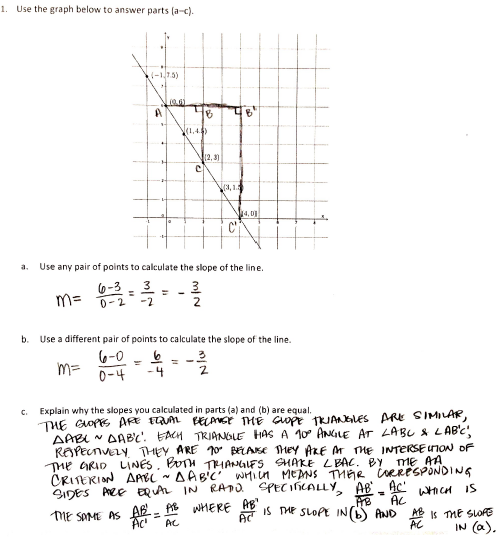 1. Use the graph below to answer parts (a–c).
y
(−1, 7.5)
(0, 6)
A
B
B'
(1, 4.5)
(2, 3)
C
(3, 1.5)
(4, 0)
x
C'
a. Use any pair of points to calculate the slope of the line.
m= 6-3/0-2 = 3/-2 = - 3/2
b. Use a different pair of points to calculate the slope of the line.
m= 6-0/0-4 = 6/-4 = - 3/2
c. Explain why the slopes you calculated in parts (a) and (b) are equal.
THE SLOPES ARE EQUAL BECAUSE THE SLOPE TRIANGLES ARE SIMILAR,
△ABC ~ △AB'C'. EACH TRIANGLE HAS A 90° ANGLE AT ∠ABC & ∠AB'C',
RESPECTIVELY. THEY ARE 90° BECAUSE THEY ARE AT THE INTERSECTION OF
THE GRID LINES. BOTH TRIANGLES SHARE ∠BAC. BY THE AA
CRITERION △ABC ~ △AB'C' WHICH MEANS THEIR CORRESPONDING
SIDES ARE EQUAL IN RATIO. SPECIFICALLY, AB'/AB = AC'/AC WHICH IS
THE SAME AS AB'/AC' = AB/AC WHERE AB'/AC' IS THE SLOPE IN (b) AND AB/AC IS THE SLOPE
IN (a).